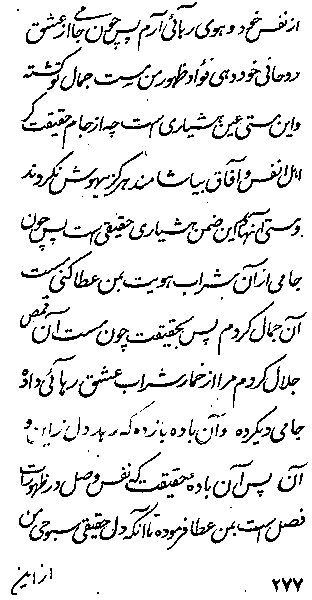 از نفس خود و هوی رهائی آرم پس چون می جا از عشق
روحانی خود دهی فؤاد ظهور من مست جمال تو گشته
و این مستی عین هشیاری است چه از جام حقیقت گر
اهل انفس و آفاق بیاشامند هرگز بیهوش نگردند
و مستی آنها هم این ضمن هشیاری حقیقی است پس چون
جامی از آن شراب هویت بمن عطا کنی مست
آن جمال کردم پس بحقیقت چون مست آن قمص
جلال کردم مرا از خمار شراب عشق رهائی داده
جامی دیگر ده و آن باده باز ده که رهد دل از این و
آن پس آن باده حقیقت که نفس وصل در ظهورات
فصل است بمن عطا فرموده تا آنکه دل حقیقی سبوحی من
از این
۲۷۷